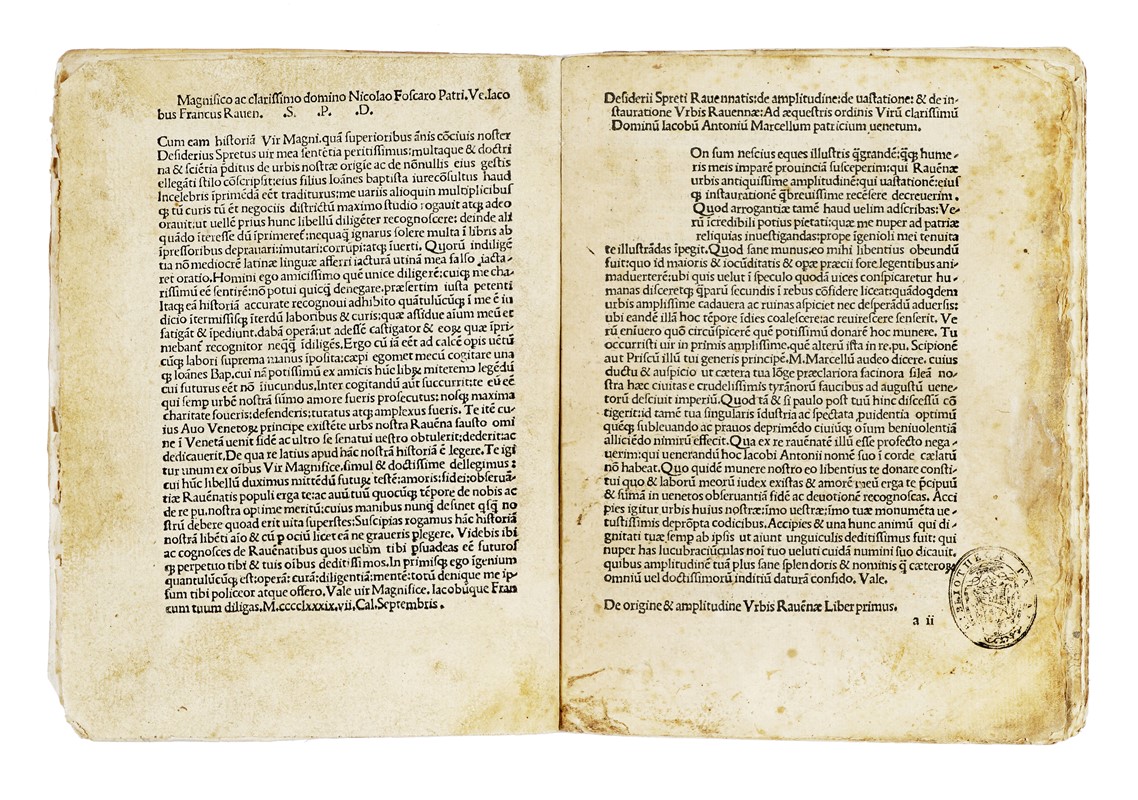 Magnifico ac clarissimo domino Nicolao Foscaro Patri. Ve. Iaco
bus Francus Rauen. .S. .P. .D.
Cum eam historiā Vir Magni. quā superioribus ānis cōciuis noster
Desiderius Spretus uir mea sentētia peritissimus: multaque & doctri
na & sciētia p̄ditus de urbis nostræ origīe ac de nōnullis eius gestis
ellegāti stilo cōscripsit: eius filius Ioānes baptista iurecōsultus haud
Incelebris īprimēdā eēt traditurus: me uariis alioquin multiplicibus
qȝ tū curis tū ēt negociis districtū maximo studio : ogauit atqȝ adeo
orauit: ut uellē prius hunc libellū diligēter recognoscere: deinde ali
quādo īteresse dū īprimeret: nequaq̄ ignarus solere multa ī libris ab
īpressoribus deprauari: imutari: corrumpi: atqȝ īuerti. Quorū indiligē
tia nō mediocrē latinæ linguæ afferri iacturā utinā mea falso iacta
ret oratio. Homini ego amicissimo quē unice diligerē: cuiqȝ me cha
rissimū eē sentirē: nō potui quicq̄ denegare. præsertim iusta petenti
Itaqȝ eā historiā accurate recognoui adhibito quātulūcūqȝ ī me ē iu
dicio ītermissisqȝ īterdū laboribus & curis: quæ assidue aīum meū et
fatigāt & īpediunt. dabā operā: ut adessē castigator & eoꝝ quæ īpri
niebant recognitor neq̄q̄ īdiligēs. Ergo cū iā eēt ad calcē opis uētū
cūqȝ labori suprema manus īposita: cæpi egomet mecū cogitare una
qȝ Ioānes Bap. cui nā potissimū ex amicis hūc libꝝ mitteremo legēdū
cui futurus eēt nō īiucundus. Inter cogitandū aūt succurrit: te eū eē
qui semp urbē nostrā sūmo amore fueris prosecutus: nosqȝ maxima
charitate foueris: defenderis: tutatus atqȝ amplexus fueris. Te itē cu
ius Auo Venetoꝝ principe existēte urbs nostra Rauēna fausto omi
ne ī Venetā uenit fidē ac ultro se senatui uestro obtulerit: dederit: ac
dedicauerit. De qua re latius apud hāc nostrā historiā ē legere. Te igi
tur unum ex oībus Vir Magnifice. simul & doctissime dellegimus:
cui hūc libellū duximus mittēdū futuꝝ testē: amoris: fidei: obseruā
tiæ Rauēnatis populi erga te: ac auū tuū quocūqȝ tēpore de nobis ac
de re pu. nostra optime meritū: cuius manibus nunq̄ desinet qsq̄ no
strū debere quoad erit uita superstes: Suscipias rogamus hāc historiā
nostrā libēti aīo & cū p ociū licet eā ne graueris plegere. Videbis ibi
ac cognosces de Rauēnatibus quos uelim tibi psuadeas eē futuros
qȝ perpetuo tibi & tuis oībus deditissimos. In primisqȝ ego īgenium
quantulūcūqȝ est: operā: curā: diligentiā: mentē: totū deniqūe me ip
sum tibi polliceor atque offero. Vale uir Magnifice. Iacobūque Fran
cum tuum diligas. M.cccclxxxix. vii. Cal. Septembris.
Desiderii Spreti Rauennatis: de amplitudine: de uastatione: & de in-
stauratione Vrbis Rauennæ: Ad æquestris ordinis Virū clarissimū
Dominū Iacobū Antoniū Marcellum patricium uenetum.
On sum nescius eques illustris q̄grandē: q̄qȝ hume-
ris meis imparē prouinciā susceperim: qui Rauēnæ
urbis antiquissime amplitudinē: qui uastationē: eius
qȝ instaurationē q̄breuissime recēsere decreuerim.
Quod arrogantiæ tamē haud uelim adscribas: Ve-
rū icredibili potius pietati: quæ me nuper ad patriæ
reliquias inuestigandas: prope īgenioli mei tenuita
te illustrādas īpegit. Quod sane munus: eo mihi libentius obeundū
fuit: quo id maioris & iocūditatis & opæ præcii fore. legentibus ani
maduerterē: ubi quis uelut ī speculo quodā uices conspicaretur hu-
manas disceretqȝ q̄parū secundis ī rebus cōfidere liceat: quādoqdem
urbis amplissime cadauera ac ruinas aspiciet nec desperādū aduersis:
ubi eandē illā hoc tēpore īdies coalescere: ac reuirescere senserit. Ve
rū eniuero quō circūspicerē quē potissimū donarē hoc munere. Tu
occurristi uir in primis amplissime. quē alterū ista in re. pu. Scipionē
aut Priscū illū tui generis principē. M. Marcellū audeo dicere. cuius
ductu & auspicio ut cætera tua lōge præclariora facinora sileā no-
stra hæc ciuitas e crudelissimis tyrānorū faucibus ad augustū uene-
torū desciuit imperiū. Quod tā & si paulo post tuū hinc discessū cō
tigerit: id tamē tua singularis īdustria ac spectata puidentia optimū
quēqȝ subleuando ac prauos deprimēdo ciuiūqȝ oīum beniuolentiā
alliciēdo nimirū effecit. Qua ex re rauēnatē illū esse profecto nega-
uerim: qui uenerandū hoc Iacobi Antonii nomē suo ī corde cælatū
nō habeat. Quo quidē munere nostro eo libentius te donare consti-
tui quo & laborū meorū iudex existas & amorē meū erga te p̄cipuū
& sūmā in uenetos obseruantiā fidē ac deuotionē recognoscas. Acci
pies igitur urbis huius nostræ: īmo uestræ: īmo tuæ monumēta ue-
tustissimis deprōpta codicibus. Accipies & una hunc animū qui di-
gnitati tuæ semp ab ipsis ut aiunt unguiculis deditissimus fuit: qui
nuper has lucubraciūculas noī tuo ueluti cuidā numini suo dicauit.
quibus amplitudinē tuā plus sane splendoris & nominis q̄ cæteroꝝ
omniū uel doctissimorū inditiū daturā confido. Vale.
De origine & amplitudine Vrbis Rauēnæ Liber primus.
a ii